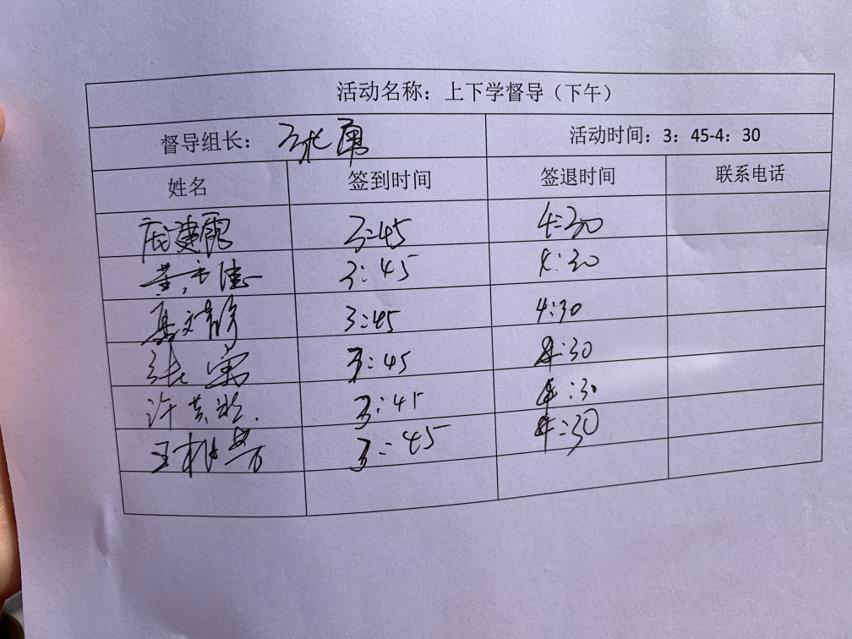 活动名称：上下学督导（下午）
督导组长： 张勇 活动时间：3：45-4：30
姓名 签到时间 签退时间 联系电话
3:45 4:30
3:45 4:30
3:45 4:30
张勇 3:45 4:30
许 3:45 4:30
王 3:45 4:30